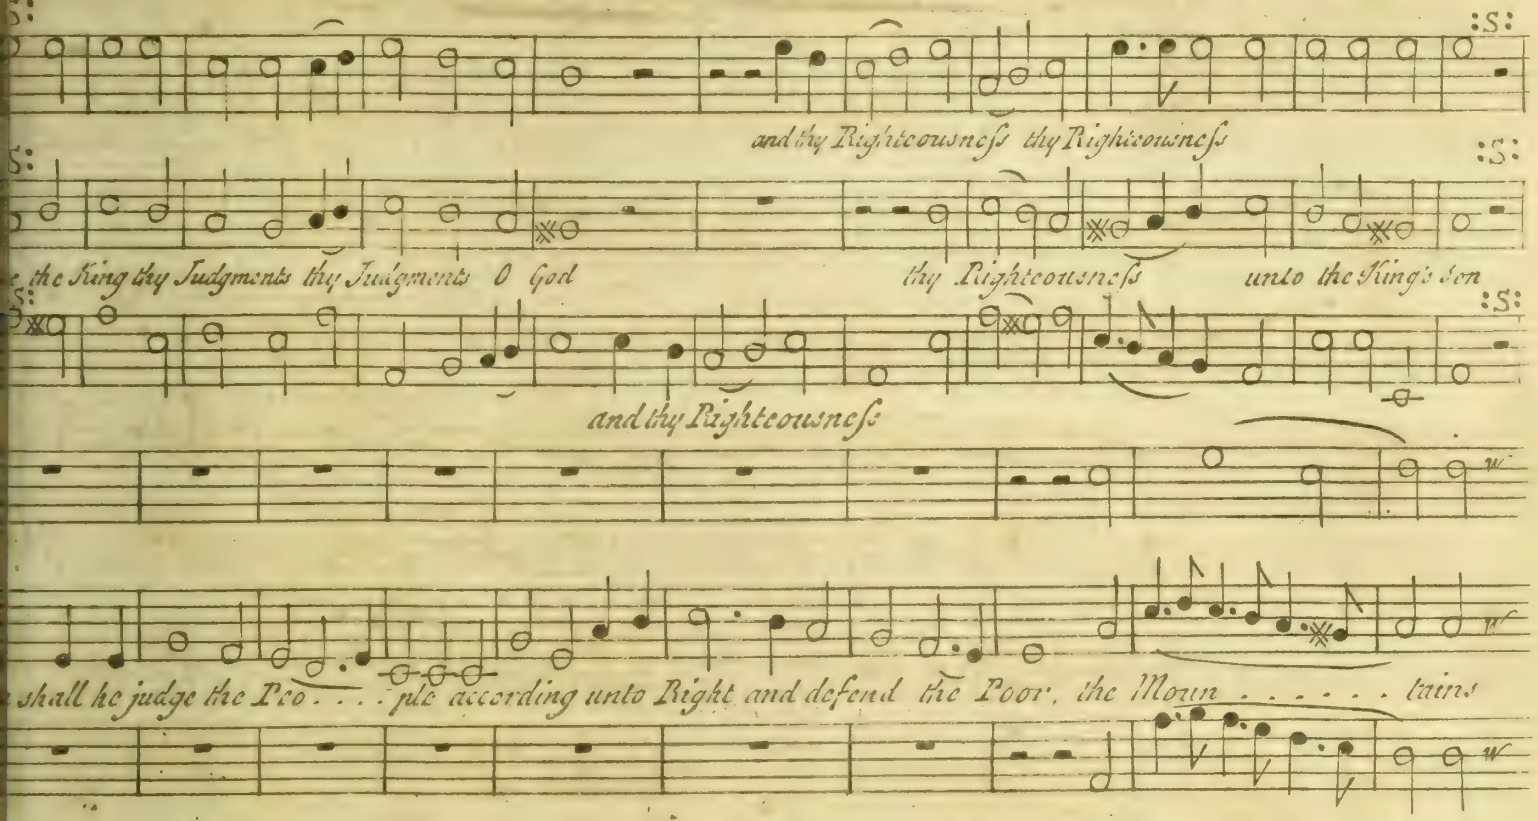 :S:
and thy Righteousneſs thy Righteousneſs
:S:
the King thy Judgments thy Judgments O God thy Righteousneſs unto the King's son
:S:
and thy Righteousneſs
shall he judge the Peo . . . . ple according unto Right and defend the Poor, the Moun . . . . . . . tains